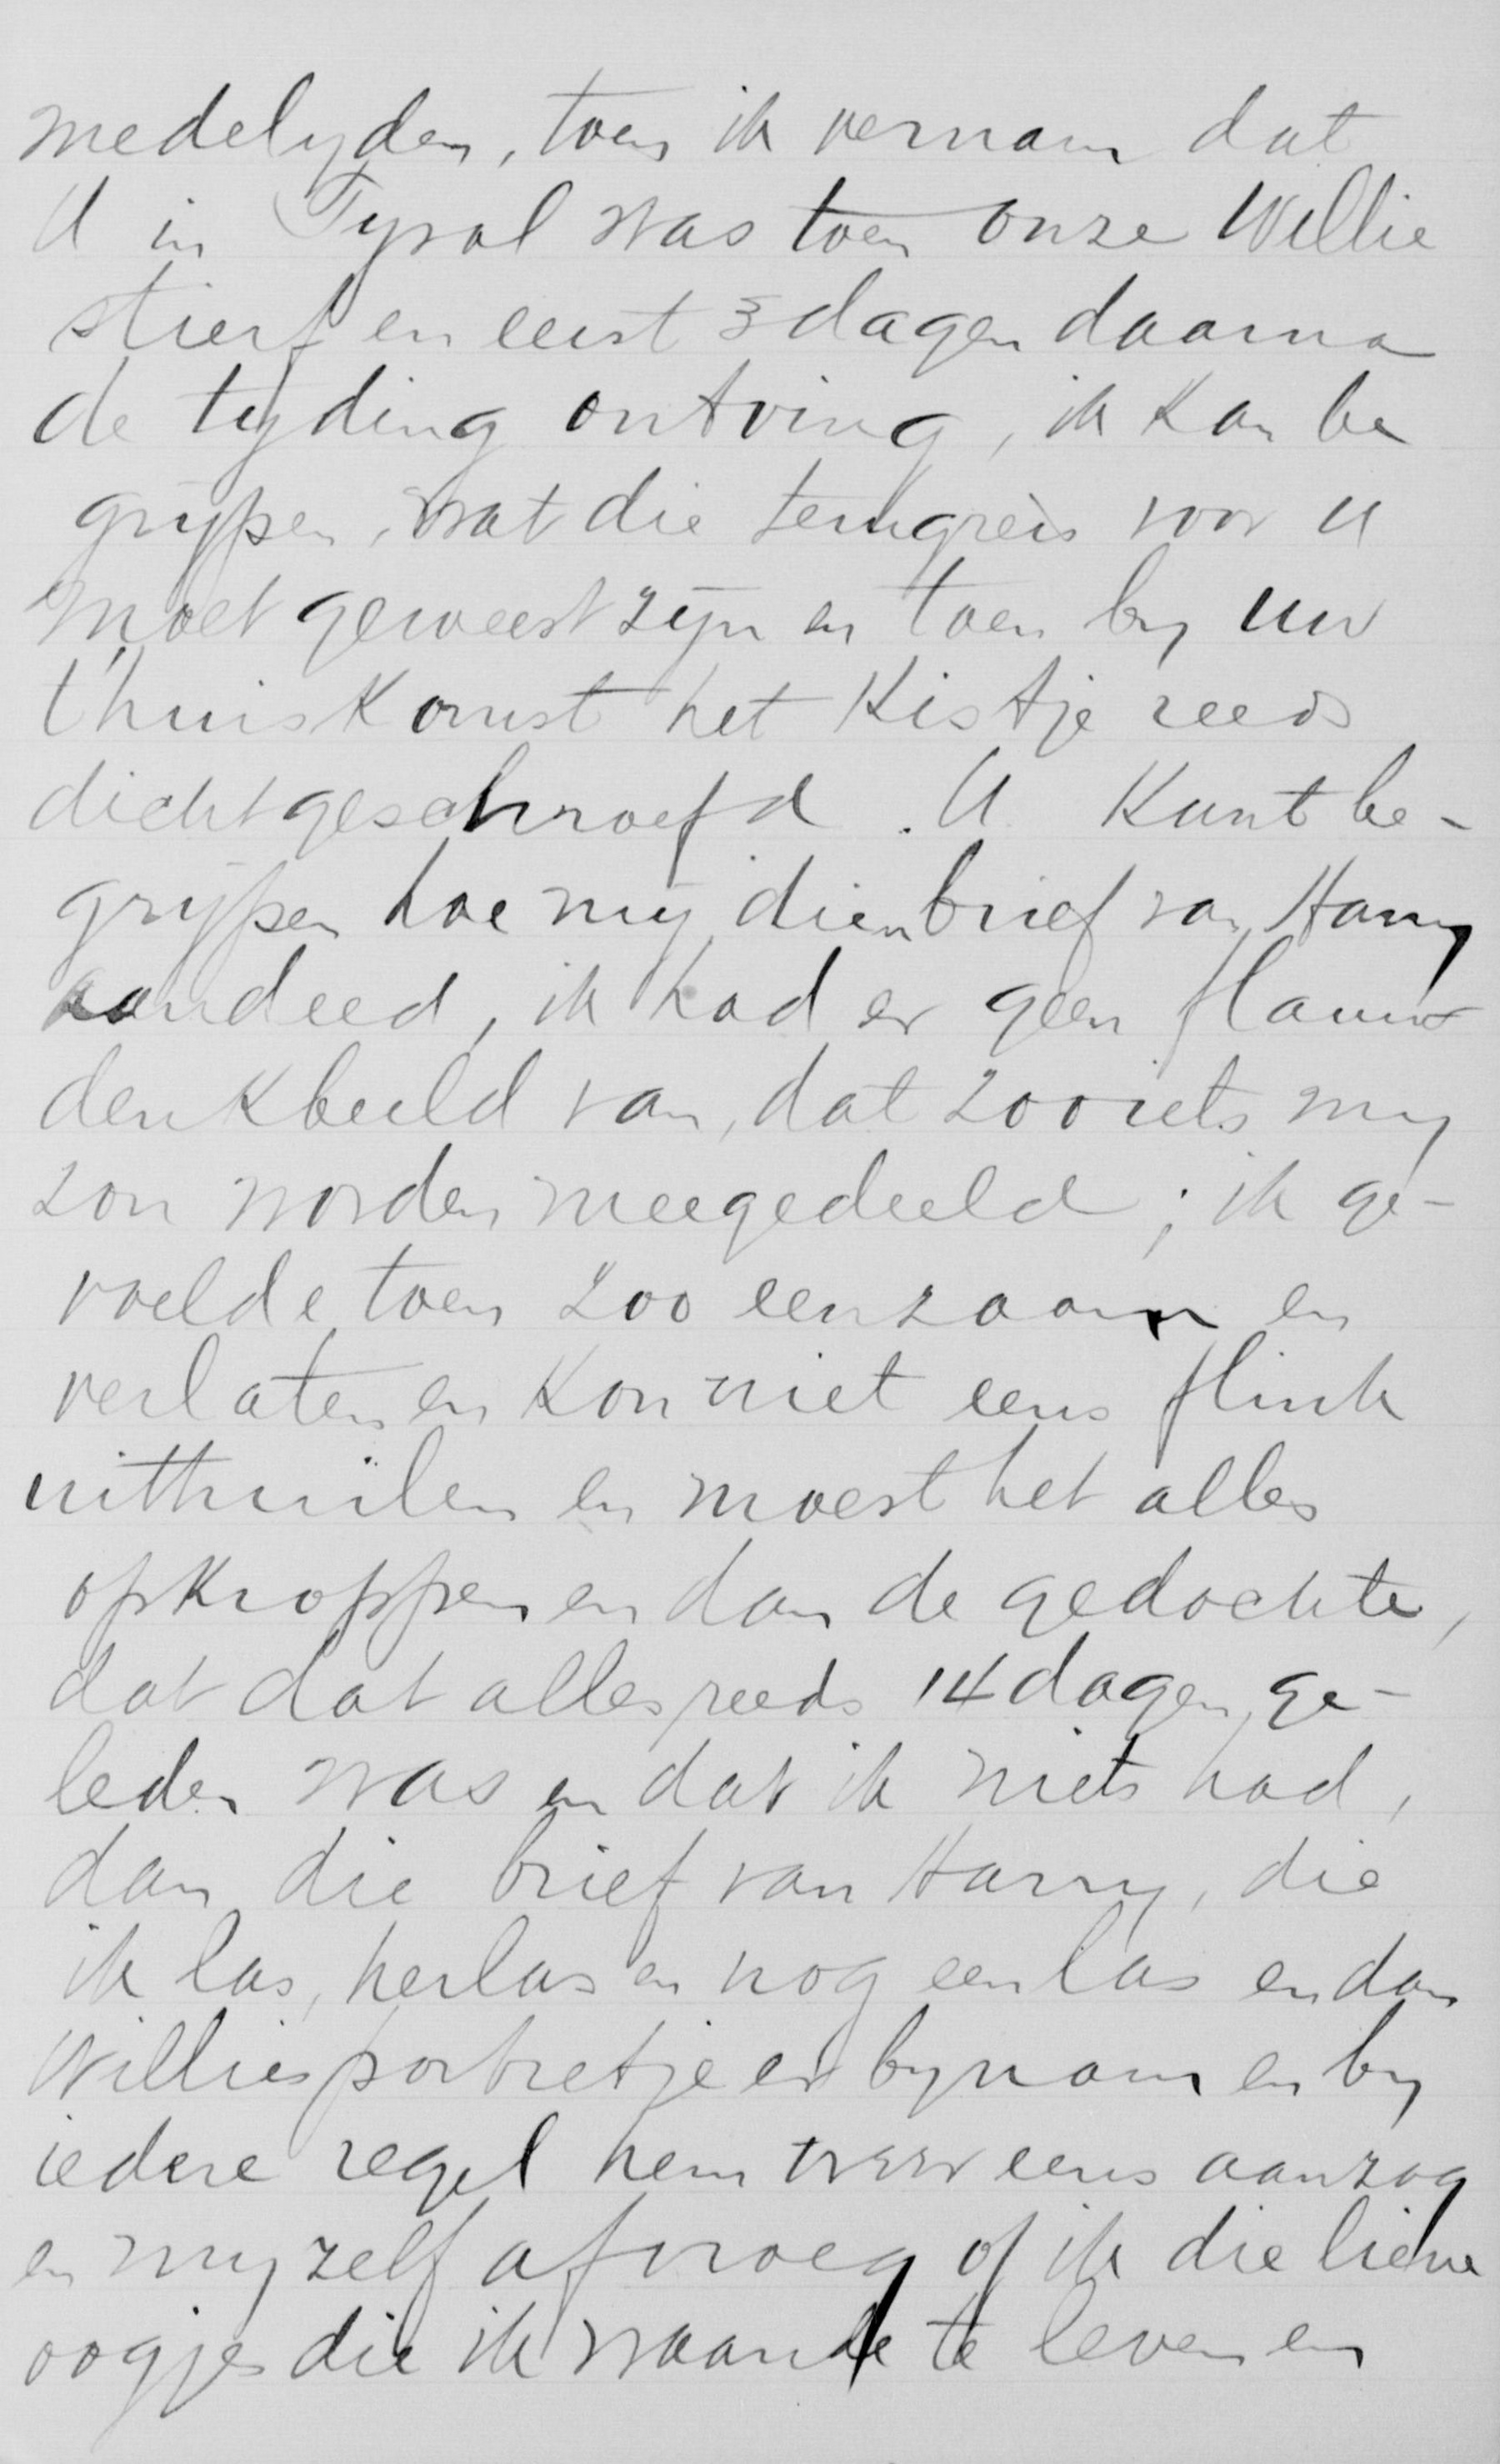 medelyden, toen ik vernam dat
U in Tyrol was toen onze Willie
stierf en eerst 3 dagen daarna
de tyding ontving, ik kan be
grypen, wat die terugreis voor U
moet geweest zyn en toen by uw
thuiskomst het kistje reeds
dichtgeschroefd. U kunt be-
grypen hoe my dien brief van Harry
aandeed, ik had er geen flauw
denkbeeld van, dat zoo iets my
zou worden meegedeeld; ik ge-
voelde toen zoo eenzaam en
verlaten en kon niet eens flink
uithuilen en moest het alles
opkroppen en dan de gedachte,
dat dat alles reeds 14 dagen ge-
leden was en dat ik niets had,
dan die brief van Harry, die
ik las, herlas en nog een las en dan
Willies portretje er bynam en by
iedere regel hem weer eens aanzag
en myzelf afvroeg of ik die lieve
oogjes die ik waande te leven en